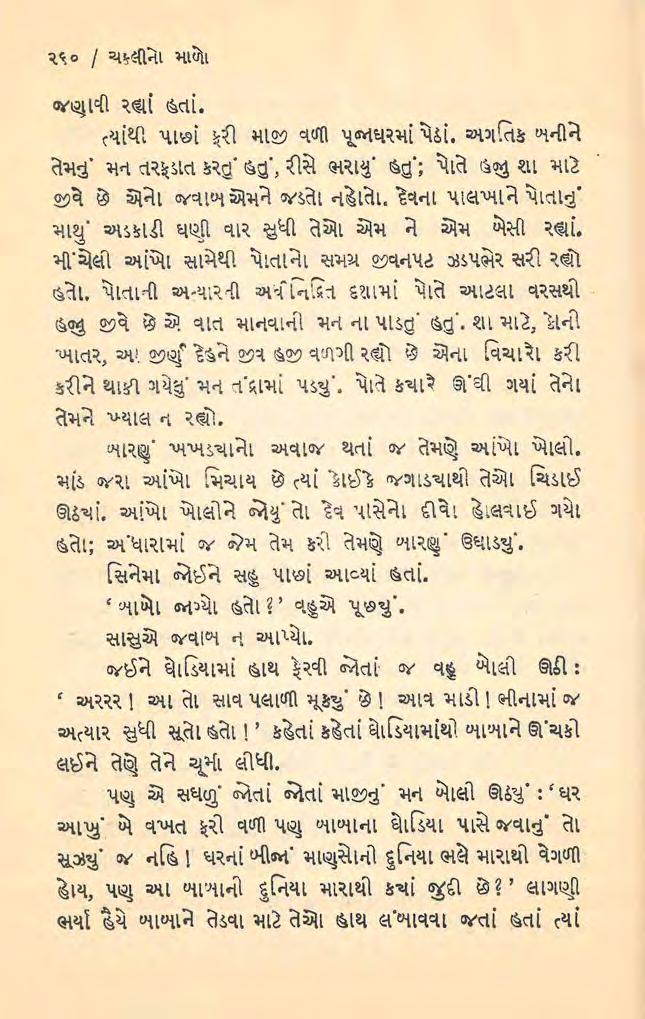 ૨૬૦ / ચકલીનો માળો
જણાવી રહ્યાં હતાં.
ત્યાંથી પાછાં ફરી માજી વળી પૂજાઘરમાં પેઠાં. અગતિક બનીને
તેમનું મન તરફડાત કરતું હતું, રીસે ભરાયું હતું; પોતે હજુ શા માટે
જીવે છે એનો જવાબ એમને જડતો નહોતો. દેવના પાલખાને પોતાનું
માથું અડકાડી ઘણી વાર સુધી તેઓ એમ ને એમ બેસી રહ્યાં.
મીંચેલી આંખો સામેથી પોતાનો સમગ્ર જીવનપટ ઝડપભેર સરી રહ્યો
હતો. પોતાની અત્યારની અર્ધનિદ્રિત દશામાં પોતે આટલા વરસથી
હજુ જીવે છે એ વાત માનવાની મન ના પાડતું હતું. શા માટે, કોની
ખાતર, આ જીર્ણ દેહને જીવ હજી વળગી રહ્યો છે એના વિચારો કરી
કરીને થાકી ગયેલું મન તંદ્રામાં પડ્યું. પોતે ક્યારે ઊંઘી ગયાં તેનો
તેમને ખ્યાલ ન રહ્યો.
બારણું ખખડ્યાનો અવાજ થતાં જ તેમણે આંખો ખોલી.
માંડ જરા આંખો મિચાય છે ત્યાં કોઈકે જગાડ્યાથી તેઓ ચિડાઈ
ઊઠ્યાં. આંખો ખોલીને જોયું તો દેવ પાસેનો દીવો હોલવાઈ ગયો
હતો; અંધારામાં જ જેમ તેમ કરી તેમણે બારણું ઉઘાડ્યું.
સિનેમા જોઈને સહુ પાછાં આવ્યાં હતાં.
‘ બાબો જાગ્યો હતો ? ’ વહુએ પૂછ્યું.
સાસુએ જવાબ ન આપ્યો.
જઈને ઘોડિયામાં હાથ ફેરવી જોતાં જ વહુ બોલી ઊઠી :
‘ અરરર ! આ તો સાવ પલાળી મૂક્યું છે ! આવ માડી ! ભીનામાં જ
અત્યાર સુધી સૂતો હતો ! ’ કહેતાં કહેતાં ઘોડિયામાંથી બાબાને ઊંચકી
લઈને તેણે તેને ચૂમી લીધી.
પણ એ સઘળું જોતાં જોતાં માજીનું મન બોલી ઊઠ્યું : ‘ ઘર
આખું બે વખત ફરી વળી પણ બાબાના ઘોડિયા પાસે જવાનું તો
સૂઝ્યું જ નહિ ! ઘરનાં બીજાં માણસોની દુનિયા ભલે મારાથી વેગળી
હોય, પણ આ બાબાની દુનિયા મારાથી ક્યાં જુદી છે ? ’ લાગણી
ભર્યા હૈયે બાબાને તેડવા માટે તેઓ હાથ લંબાવવા જતાં હતાં ત્યાં